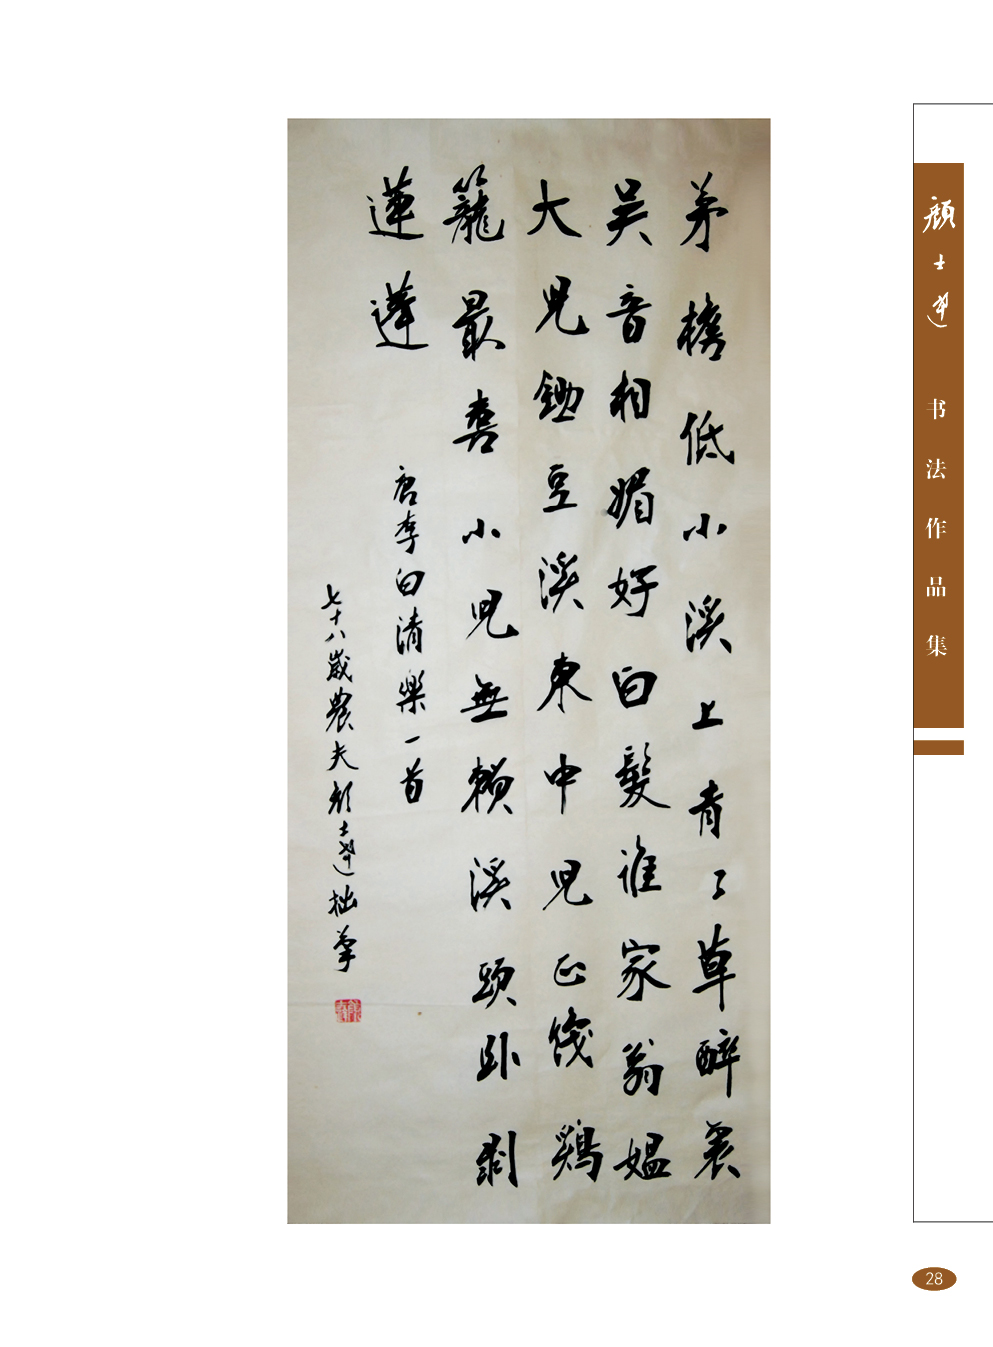 茅檐低小溪上青〻草醉裏
吴音相媚好白髮誰家翁媪
大兒鋤豆溪東中兒正筏鷄
籠最喜小兒無賴溪頭卧剥
蓮蓬
唐李白清樂一首
七十八歲農夫顔士拙筆
顔士
书法作品集
28